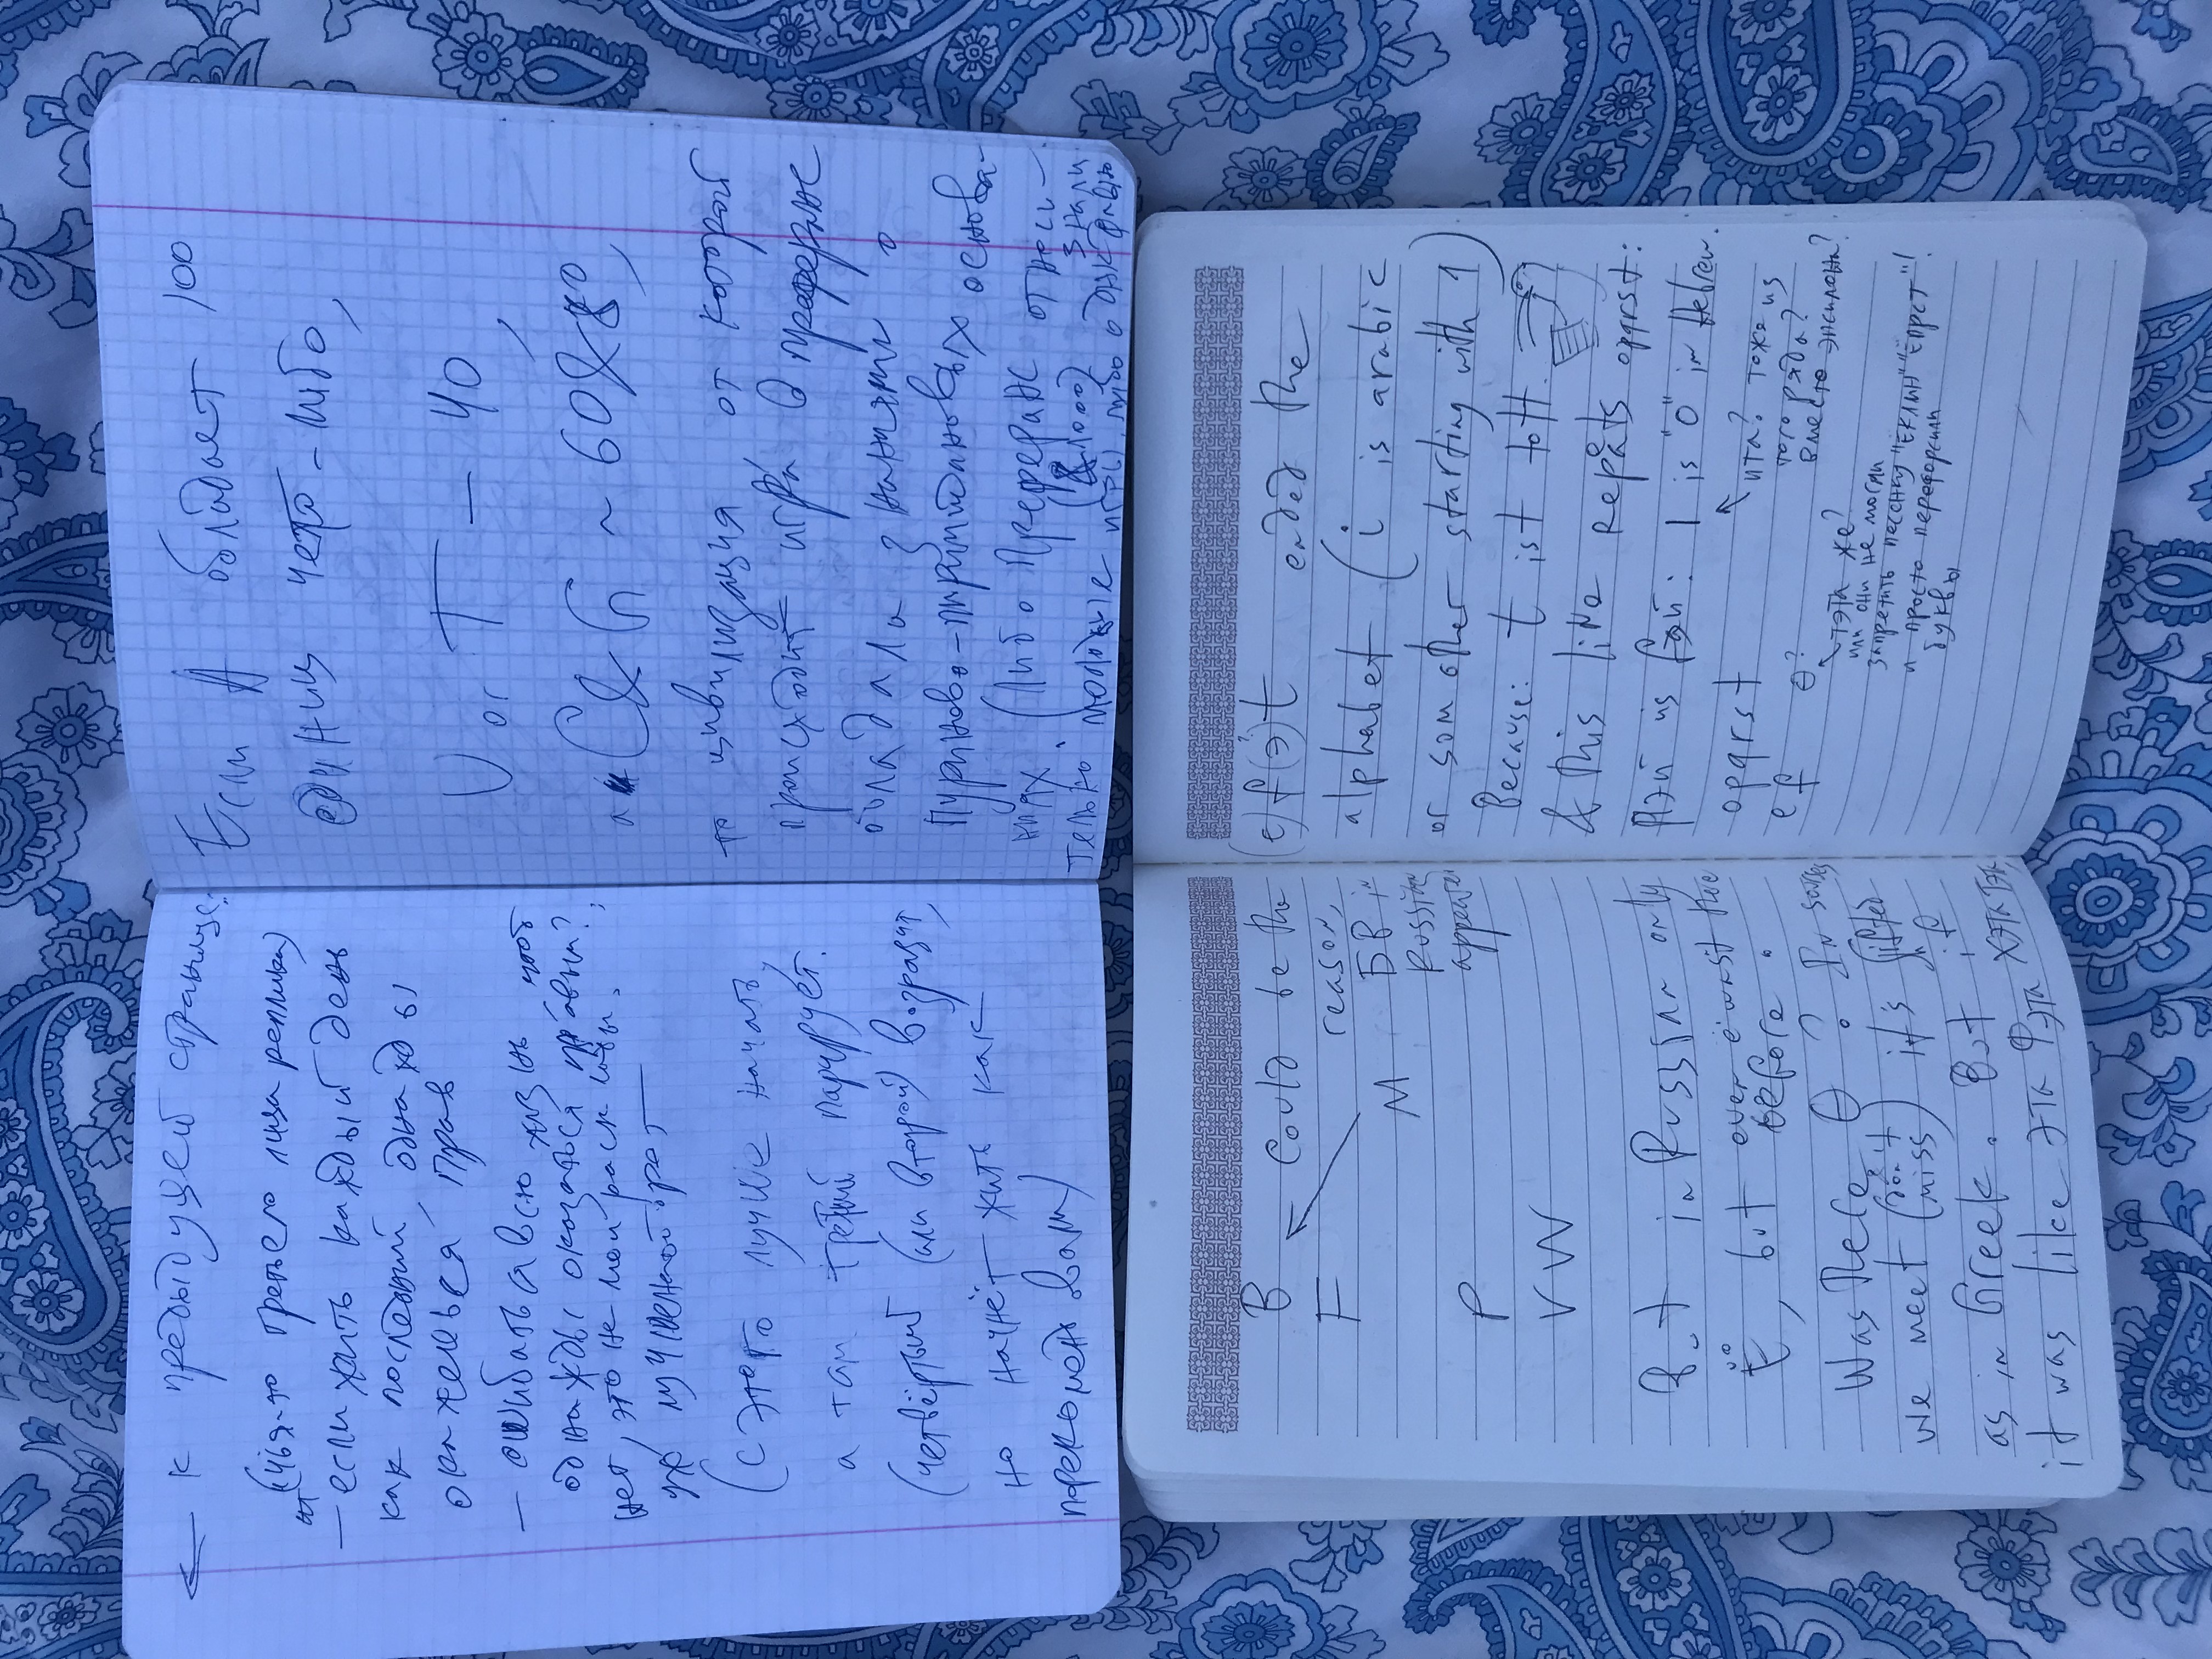 ← к предыдущей странице:
(чья-то третьего лица реплика)
— если жить каждый день
как последний, однажды
окажешься прав
— ошибаться всю жизнь, чтоб
однажды оказаться правым?
нет, это не мои расклады.
уж лучше наоборот —
(с этого лучше начать,
а там третий парирует.
(четвёртый (или второй) возразит,
но начнёт жить как
порекомендовали)
Если A обладает 100
единиц чего-либо,
U or T — 40,
а C & G ~ 60 & 80,
то цивилизация, от которой
происходит игра в преферанс
обладала знаниями о
пуриново-пиримидановых основа-
ниях. (Либо преферанс относи-
тельно молодые (&1000) знали
игры, либо о ДНК
B Could be the
F reason,
M БВ in
Russian
appeared
P
V W
But in Russian only
ё, but even ё wasn't there
before.
Was there Θ? In sources
we meet (don't miss) it's shifted
as in Greek. But if
it was like эта фэта хэта тэта,
(e)f(э?)t ended the
alphabet (i is arabic
or som other starting with 1)
Because: t ist tott.
& this line repeats opqrst:
пэй из фэй: 1 is "0" in Hebrew.
opqrst
ита? тоже из
того ряда?
вместо эпсилона?
ef Θ?
тэта же?
или они не могли
запретить песенку "ЁКЛМН" "ЁПРСТ"!
и просто перефорсили
буквы